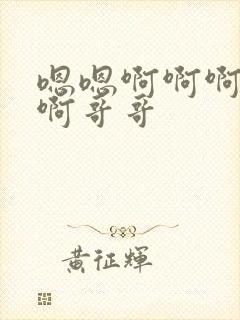 嗯嗯啊啊啊
啊哥哥
黄征辉